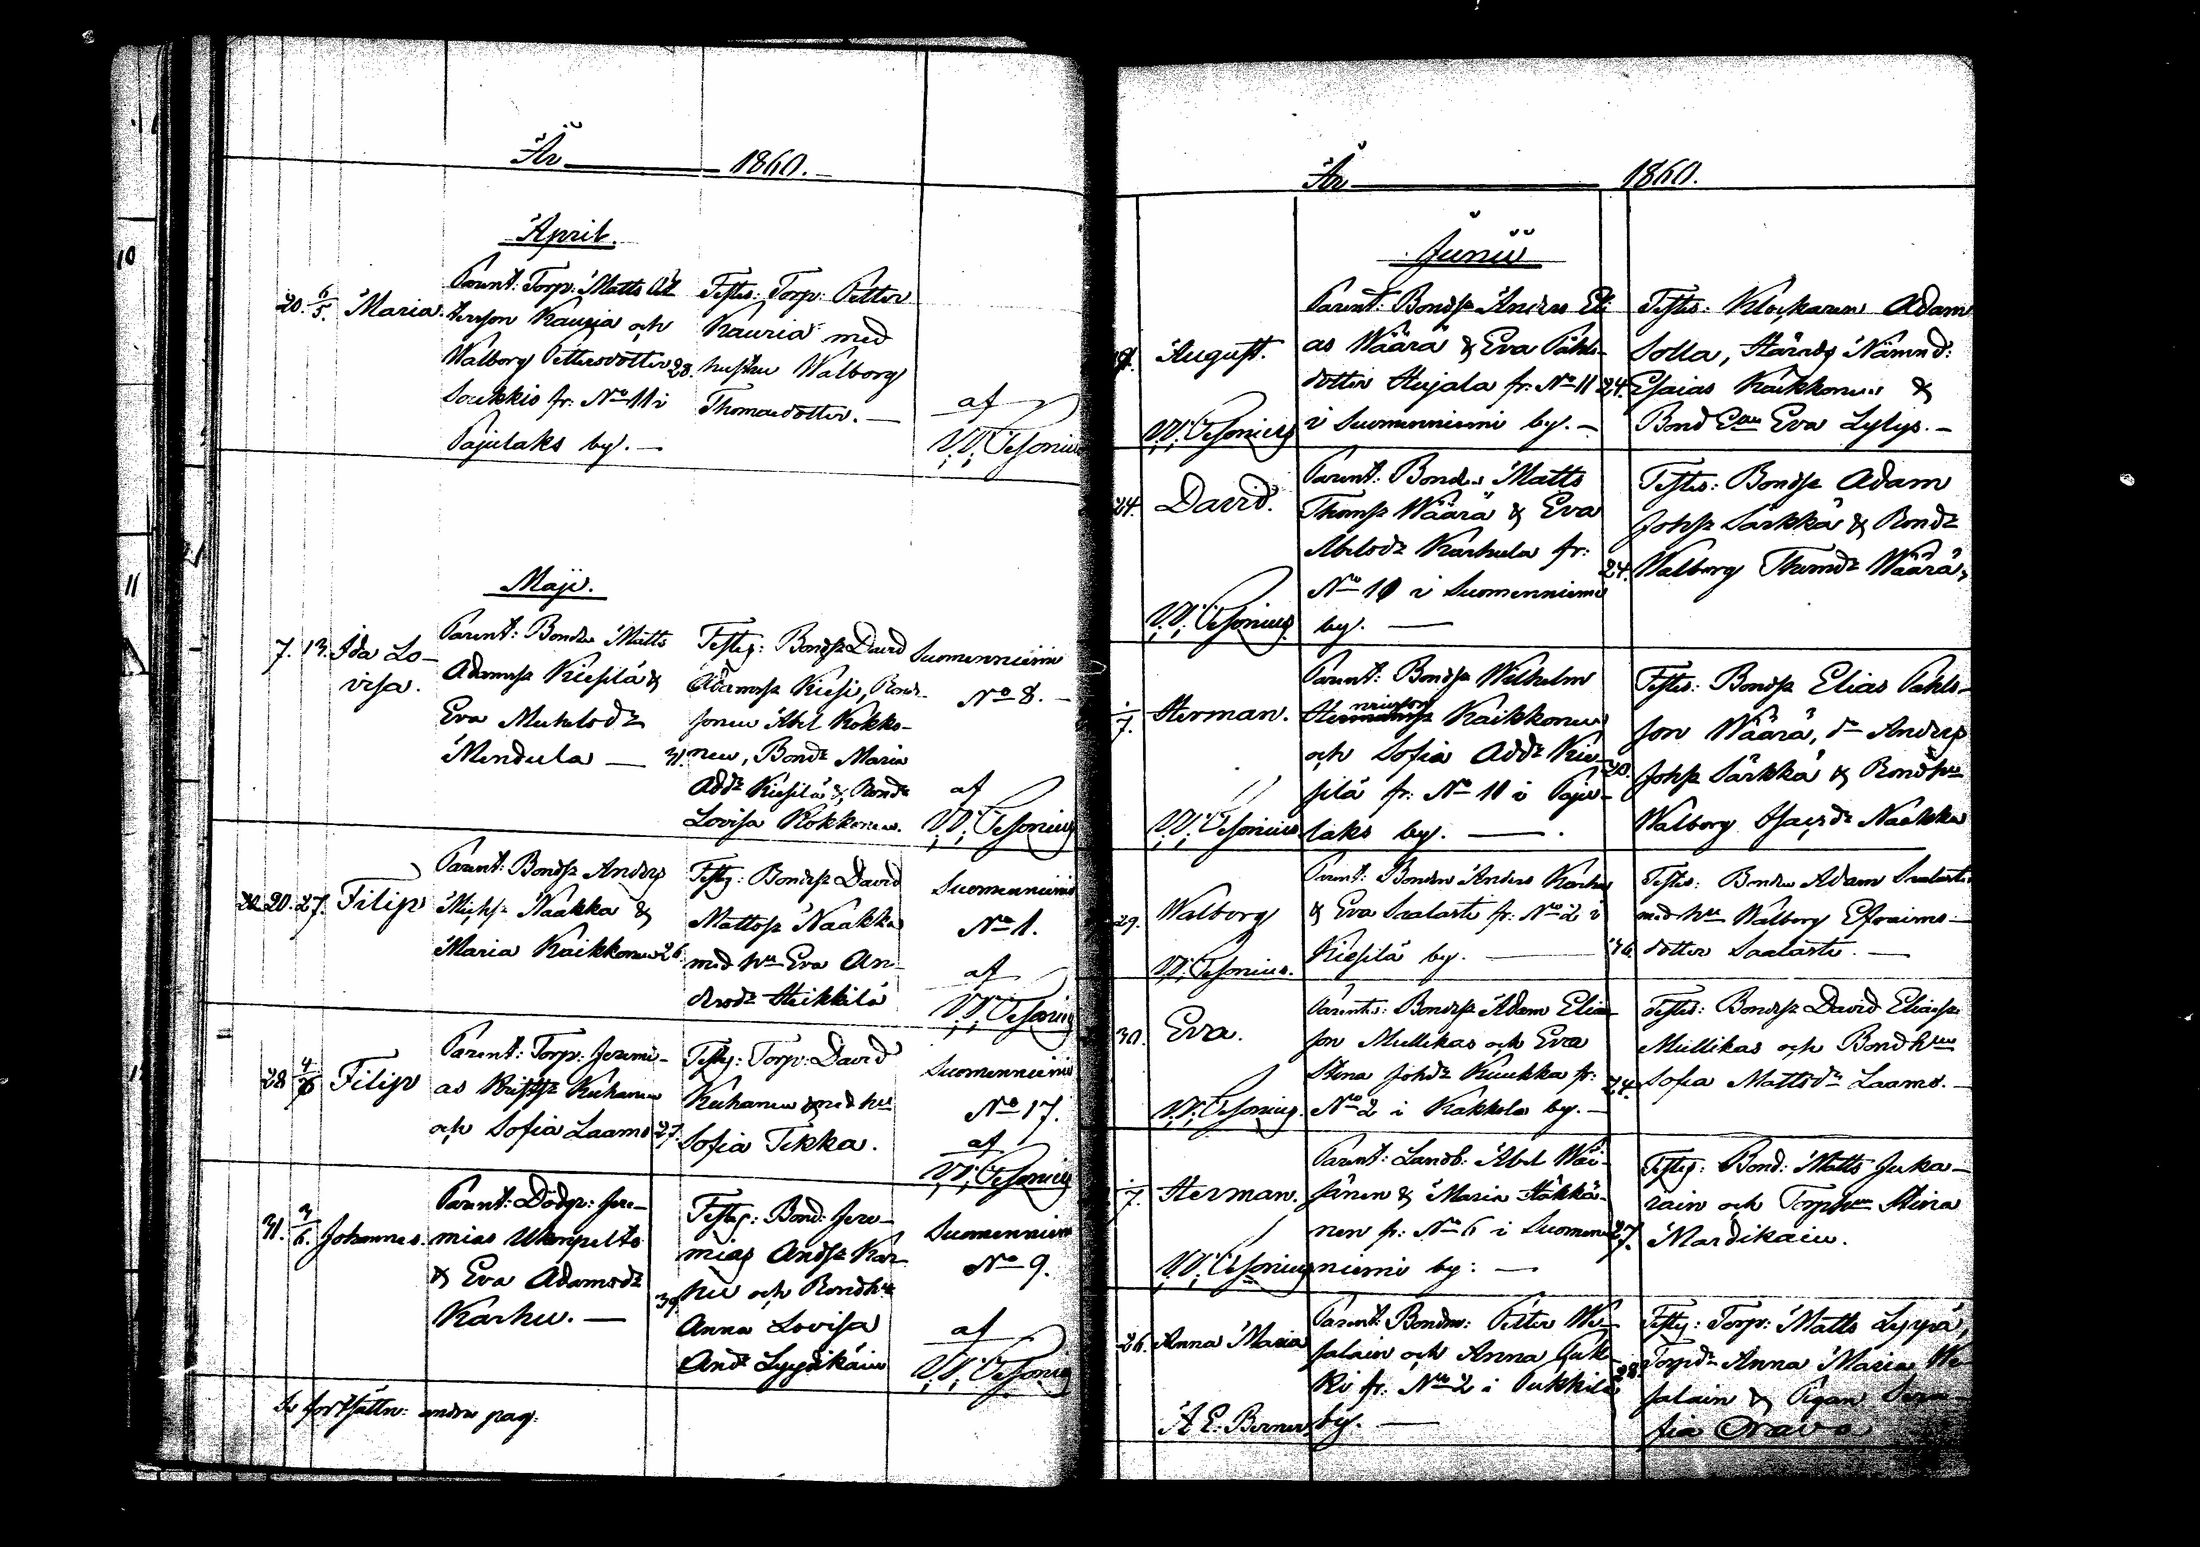 År 1860.
April.
20. 6/5. Maria.
Parent: Torp: Matts Pet
tersson Kauria och
Walborg Pettersdotter 28.
Soukkio fr: No 11 i
Pajulaks by. —
Testes: Torp: Petter
Kauria med
hustru Walborg
Thomasdotter. —
af
Maji.
7. 13. Ida Lo-
visa.
Parent: Bonden Matts
Adamss Kiesilä &
Eva
Mendula — 31.
Testes: Bondss David
Adamss Kiesi, Bond-
sonen Abel Kokko-
nen, Bondr Maria
Addr Kiesilä & Bondr
Lovisa Kokkonen.
Suomenniemi
No 8. —
af
20. 27. Filip
Parent: Bondss Anders
Michss Naakka &
Maria Kaikkonen 26.
Testes: Bondess David
Mattss Naakka
med hu Eva An-
dersdr Heikkilä
Suomenniemi
No 1.
af
28 4/6 Filip
Parent: Torp: Jeremi-
as Kuhanen
och Sofia Laamo 27.
Testes: Torp: David
Kuhanen med hu
Sofia Tikka.
Suomenniemi
No 17.
af
31. 3/6. Johannes.
Parent: Dödgr: Jere-
mias
& Eva Adamsdr
Karhu. — 39.
Testes: Bond: Jere-
mias Andss Kar-
hu och Bondhu
Anna Lovisa
Andr Lyydikäin
Suomenniem
No 9.
af
Se fortsättn: andra pag:
År 1860.
Junii
August.
Parent: Bondss Anders Eli
as Wäärä & Eva Påhls-
dotter Hujala fr: No 11 24.
i Suomenniemi by. —
Testes: Klockaren Adam
Solla, Härads Nämnd:
Esaias Kaikkonen &
Bond Eva Lylys. —
24. David.
Parent: Bonden Matts
Thomss Wäärä & Eva
Abelsdr Karhula fr:
No 10 i Suomenniemi
by. —
Testes: Bondss Adam
Johss Särkkä & Bondr
24. Walborg Thomdr Wäärä,
7. Herman.
Parent: Bondss Wilhelm
Kaikkonen
och Sofia Addr Kie-
silä fr: No 11 i Paju-
laks by. —
Testes: Bondss Elias Påhls-
son Wäärä, do Anders
Johss Särkkä & Bondhu
Walborg Naakka
29. Walborg
Parent: Bonden Anders Karhu
& Eva Saalasti fr: No 2 i
Kiesilä by. — 36.
Testes: Bonden Adam Saalasti
med hu Walborg Efraims-
dotter Saalasti. —
30. Eva.
Parentes: Bondess Adam Elias-
son Mullikas och Eva
Stina Johdr Kuukka fr: 24.
No 2 i Kakkola by. —
Testes: Bondess David Eliasss
Mullikas och Bondhu
Sofia Mattsdr Laamo. —
7. Herman.
Parent: Landb: Abel Wäi-
sänen & Maria Häkkä-
nen fr: No 6 i Suomen 27.
niemi by: —
Testes: Bond: Matts Juka-
rain och Torphu Stina
Mardikain.
26. Anna Maria
Parent: Bondn: Petter We-
salain och Anna Juk-
ki fr. No 2 i Pukkila
by. —
Testes: Torp: Matts Lyyrä,
Torpdr Anna Maria We-
salain & Pigan Sera-
fia Orava
A E: Berner.